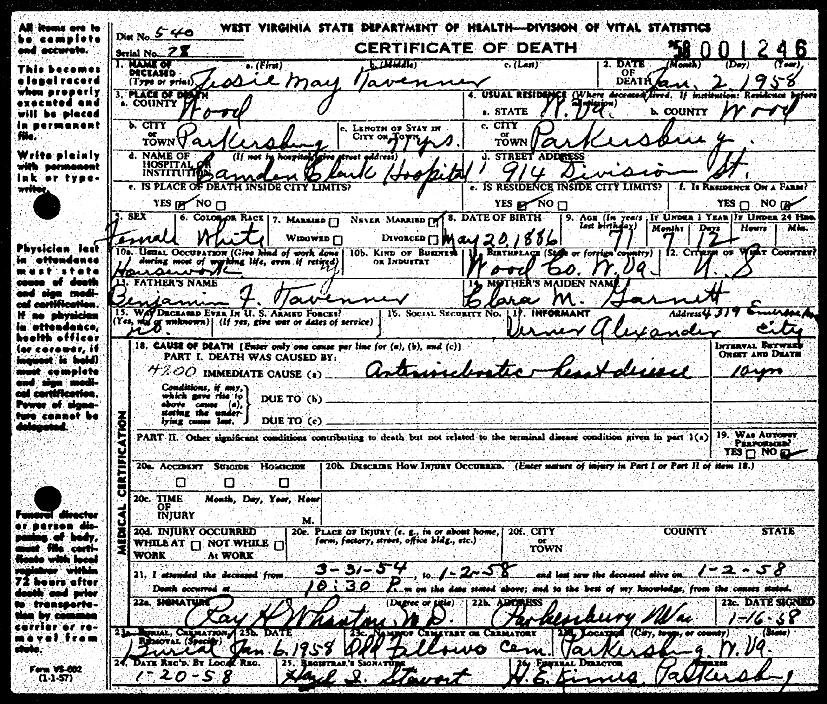 WEST VIRGINIA STATE DEPARTMENT OF HEALTH—DIVISION OF VITAL STATISTICS
Dist No. 540
Serial No. 28
CERTIFICATE OF DEATH
58 001246
1. NAME OF DECEASED (Type or print) a. (First) b. (Middle) c. (Last)
Jessie May Tavenner
2. DATE OF DEATH (Month) (Day) (Year)
Jan. 2, 1958
3. PLACE OF DEATH
a. COUNTY Wood
4. USUAL RESIDENCE (Where deceased lived. If institution: Residence before admission)
a. STATE W. Va. b. COUNTY Wood
b. CITY OR TOWN Parkersburg
c. LENGTH OF STAY IN CITY OR TOWN yrs.
c. CITY OR TOWN Parkersburg.
d. NAME OF HOSPITAL OR INSTITUTION (If not in hospital, give street address)
Camden Clark Hospital
d. STREET ADDRESS
914 Division St.
e. IS PLACE OF DEATH INSIDE CITY LIMITS?
YES NO
e. IS RESIDENCE INSIDE CITY LIMITS?
YES NO
f. IS RESIDENCE ON A FARM?
YES NO
5. SEX Female
6. COLOR OR RACE White
7. MARRIED NEVER MARRIED
WIDOWED DIVORCED
8. DATE OF BIRTH May 20, 1886
9. AGE (In years last birthday) 71
IF UNDER 1 YEAR Months 7 Days 12
IF UNDER 24 HRS. Hours Min.
10a. USUAL OCCUPATION (Give kind of work done during most of working life, even if retired)
Housework
10b. KIND OF BUSINESS OR INDUSTRY
11. BIRTHPLACE (State or foreign country)
Wood Co. W. Va.
12. CITIZEN OF WHAT COUNTRY?
U. S
13. FATHER'S NAME
Benjamin F. Tavenner
14. MOTHER'S MAIDEN NAME
Clara M. Garnett
15. WAS DECEASED EVER IN U. S. ARMED FORCES?
(Yes, no, or unknown) (If yes, give war or dates of service)
no.
16. SOCIAL SECURITY NO.
17. INFORMANT Address
Verner Alexander 4319 Emerson City
18. CAUSE OF DEATH [Enter only one cause per line for (a), (b), and (c)]
PART I. DEATH WAS CAUSED BY:
INTERVAL BETWEEN ONSET AND DEATH
4200 IMMEDIATE CAUSE (a) Arteriosclerotic heart disease 10 yrs
Conditions, if any, which gave rise to above cause (a), stating the underlying cause last.
DUE TO (b)
DUE TO (c)
PART II. Other significant conditions contributing to death but not related to the terminal disease condition given in part I(a)
19. WAS AUTOPSY PERFORMED?
YES NO
20a. ACCIDENT SUICIDE HOMICIDE
20b. DESCRIBE HOW INJURY OCCURRED. (Enter nature of injury in Part I or Part II of item 18.)
20c. TIME OF INJURY Month, Day, Year, Hour
M.
20d. INJURY OCCURRED
WHILE AT WORK NOT WHILE AT WORK
20e. PLACE OF INJURY (e. g., in or about home, farm, factory, street, office bldg., etc.)
20f. CITY OR TOWN COUNTY STATE
21. I attended the deceased from 3-31-54, to 1-2-58 and last saw the deceased alive on 1-2-58
Death occurred at 10:30 P. m on the date stated above; and to the best of my knowledge, from the causes stated.
22a. SIGNATURE (Degree or title)
Ray H Wharton M.D.
22b. ADDRESS
Parkersburg W Va
22c. DATE SIGNED
1-16-58
23a. BURIAL, CREMATION, REMOVAL (Specify)
Burial
23b. DATE
Jan. 6, 1958
23c. NAME OF CEMETERY OR CREMATORY
Odd Fellows Cem.
23d. LOCATION (City, town, or county) (State)
Parkersburg, W. Va.
24. DATE REC'D. BY LOCAL REG.
1-20-58
25. REGISTRAR'S SIGNATURE
Stewart
26. FUNERAL DIRECTOR ADDRESS
Parkersburg
All items are to be complete and accurate.
This becomes a legal record when properly executed and will be placed in permanent file.
Write plainly with permanent ink or typewriter.
Physician last in attendance must state cause of death and sign medical certification. If no physician in attendance, health officer (or coroner, if inquest is held) must complete and sign medical certification. Power of signature cannot be delegated.
Funeral director or person disposing of body, must file certificate with local registrar within 72 hours after death and prior to transportation by common carrier or removal from state.
MEDICAL CERTIFICATION
Form VS-002
(1-1-57)